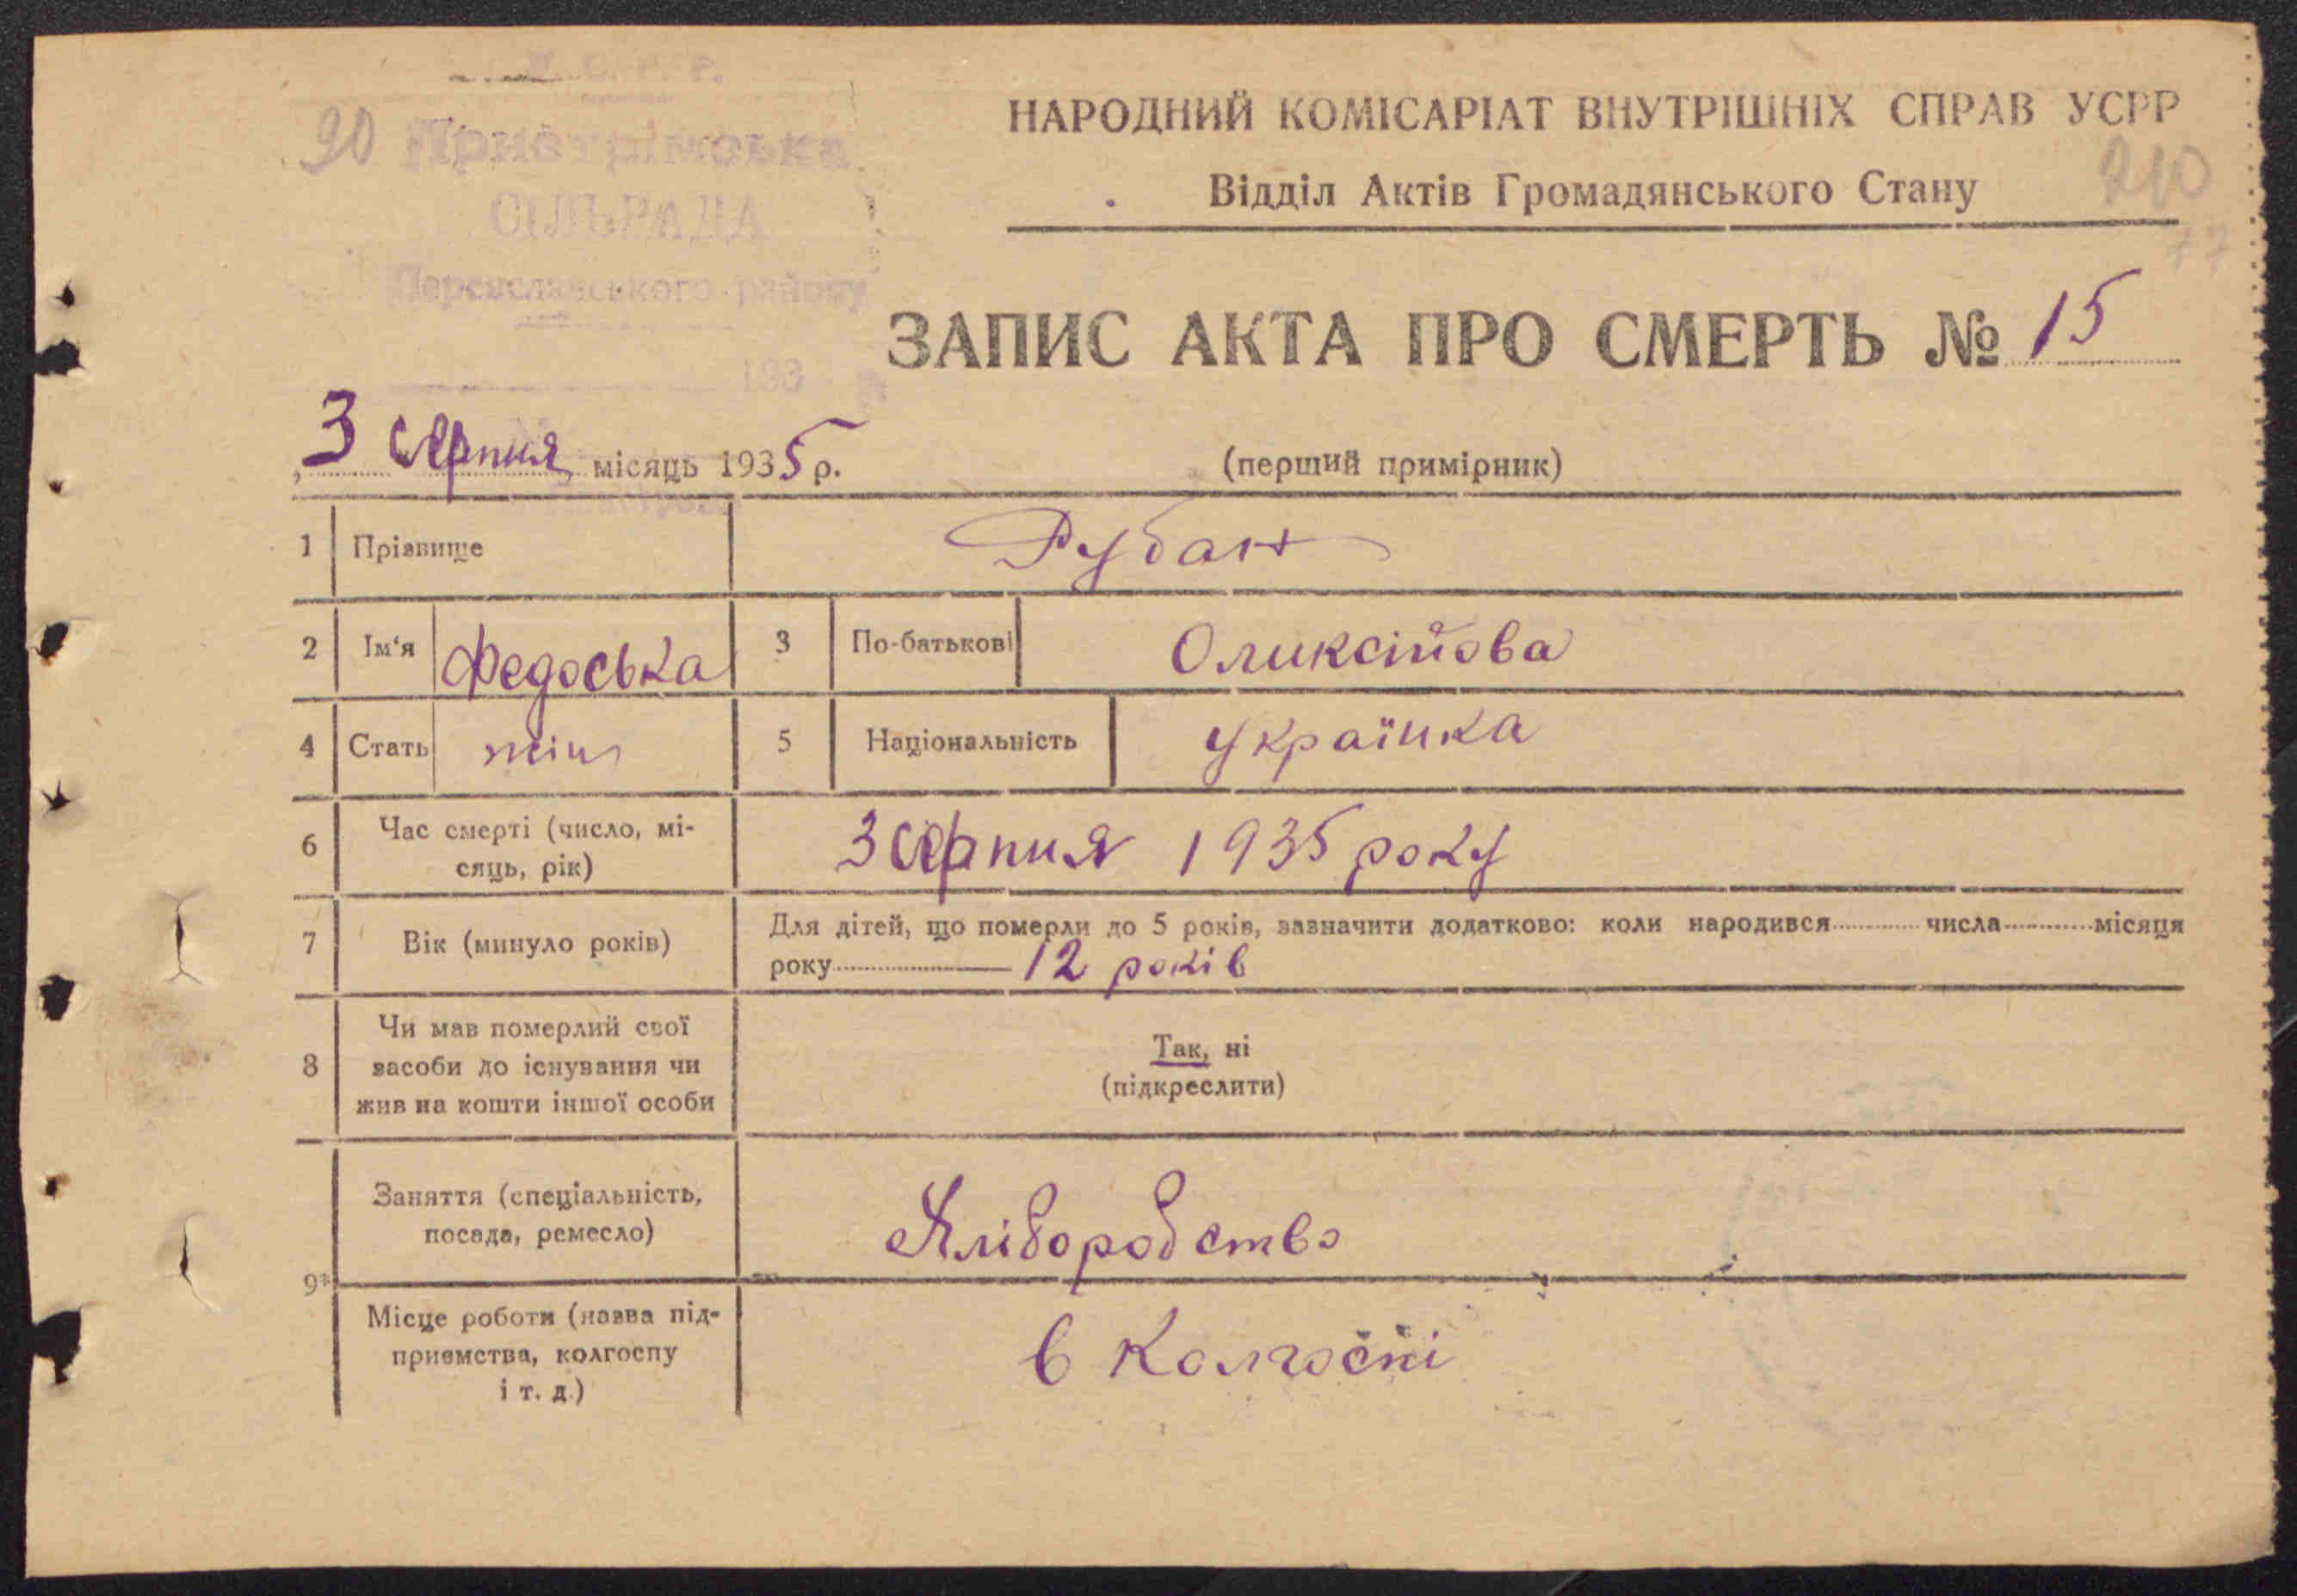 У. С. Р. Р.
90 Пристрімська
СІЛЬРАДА
Переяславського району
193
НАРОДНИЙ КОМІСАРІАТ ВНУТРІШНІХ СПРАВ УСРР
Відділ Актів Громадянського Стану
210
77
ЗАПИС АКТА ПРО СМЕРТЬ № 15
3 серпня місяць 1935 р.
(перший примірник)
1 Прізвище Рубан
2 Ім‘я Федоська 3 По-батькові Оликсійова
4 Стать жін 5 Національність Українка
6 Час смерті (число, мі-
сяць, рік) 3 серпня 1935 року
7 Вік (минуло років) Для дітей, що померли до 5 років, зазначити додатково: коли народився числа місяця
року 12 років
8 Чи мав померлий свої
засоби до існування чи
жив на кошти іншої особи
Так, ні
(підкреслити)
9* Заняття (спеціальність,
посада, ремесло) Хліборобство
Місце роботи (назва під-
приємства, колгоспу
і т. д.) в Колгоспі